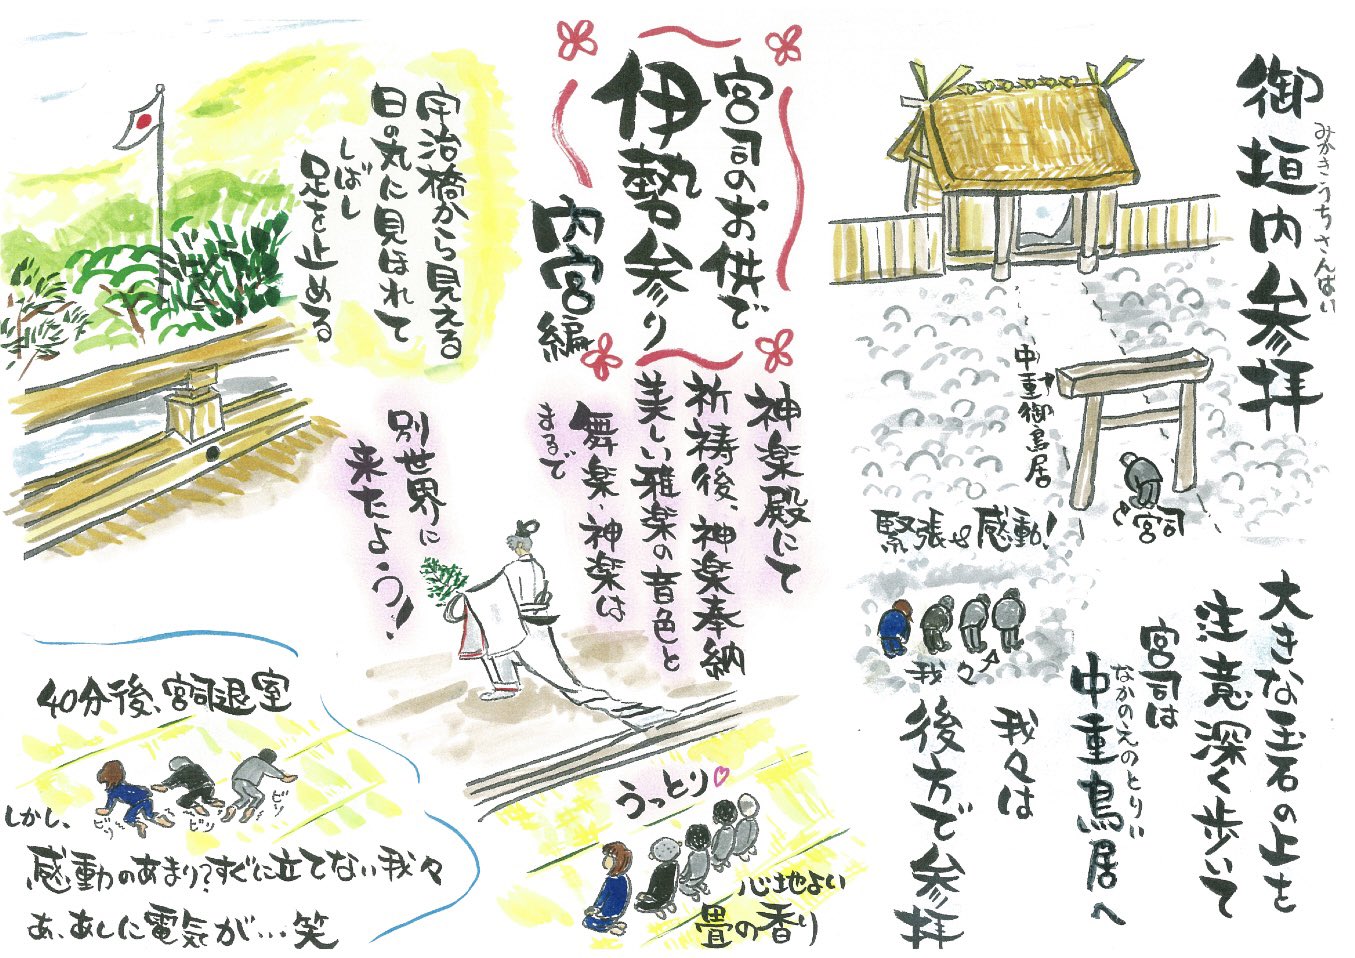 宮司のお供で
伊勢参り
内宮編
御垣内参拝
みかきうちさんぱい
中重御鳥居
宮司
緊張や感動!
我々
大きな玉石の上を
注意深く歩いて
宮司は
中重鳥居へ
なかのえのとりい
我々は
後方で参拝
宇治橋から見える
日の丸に見ほれて
しばし
足を止める
神楽殿にて
祈祷後、神楽奉納
美しい雅楽の音色と
舞楽・神楽は
まるで
別世界に
来たよう!
うっとり
心地よい
畳の香り
40分後、宮司退室
しかし、
ビリ
ビリ
ビリ
感動のあまり?すぐに立てない我々
あ、あしに電気が…笑